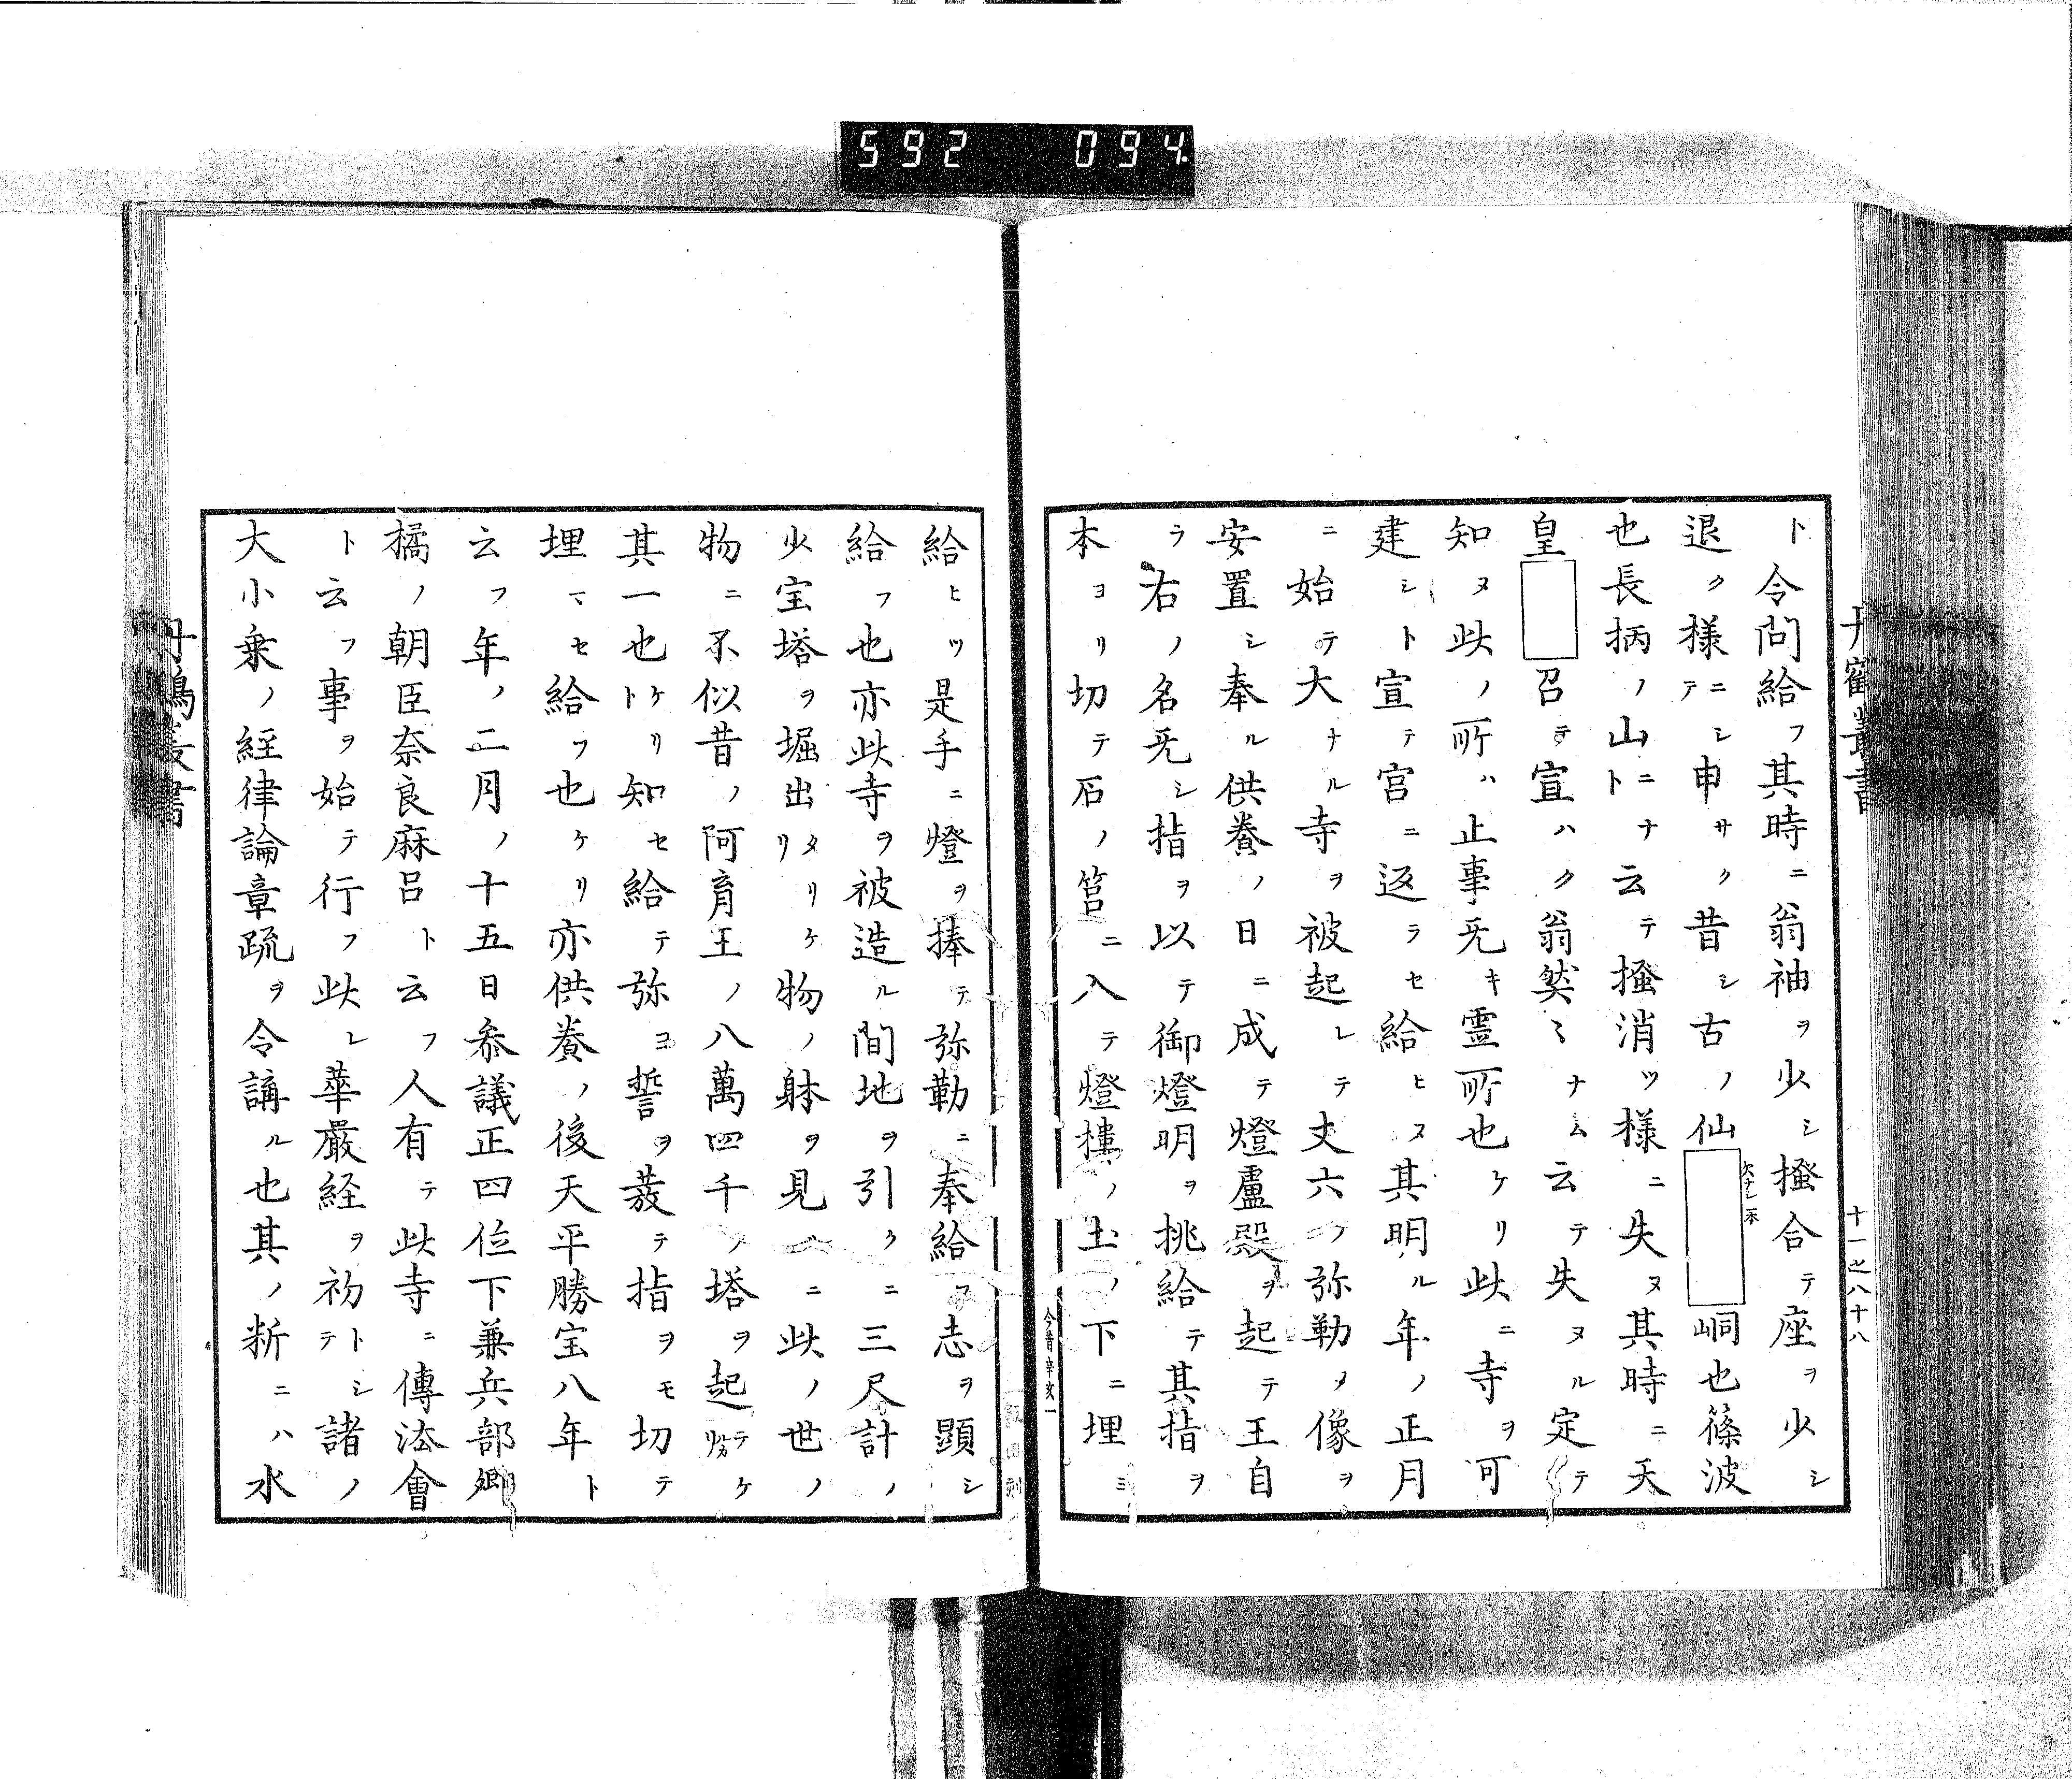 592 094.
丹鶴叢書
十一之八十八
ト令問給フ其時ニ翁袖ヲ少シ掻合テ座ヲ少シ
退ク様ニテシ申サク昔シ古ノ仙□峒也篠波
欠ナシ一本
也長柄ノ山ニトナ云テ掻消ツ様ニ失ヌ其時ニ天
皇□召テ宣ハク翁然〻ナム云テ失ヌル定テ
知ヌ此ノ所ハ止事旡キ霊所也ケリ此ニ寺ヲ可
建シト宣テ宮ニ返ラセ給ヒヌ其明ル年ノ正月
ニ始テ大ナル寺ヲ被起レテ丈六ノ弥勒ノ像ヲ
安置シ奉ル供養ノ日ニ成テ燈盧殿ヲ起テ王自
ラ右ノ名旡シ指ヲ以テ御燈明ヲ挑給テ其指ヲ
本ヨリ切テ石ノ筥ニ入テ燈樓ノ土ノ下ニ埋ミ
今昔辛亥一
給ヒツ是手ニ燈ヲ捧テ弥勒ニ奉給フ志ヲ顕シ
給フ也亦此寺ヲ被造ル間地ヲ引クニ三尺計ノ
少宝塔ヲ堀出タリリケ物ノ躰ヲ見ニ此ノ世ノ
物ニ不似昔ノ阿育王ノ八萬四千ノ塔ヲ起テケリ
其一也ケリト知セ給テ弥ヨ誓ヲ発テ指ヲモ切テ
埋マセ給フ也ケリ亦供養ノ後天平勝宝八年ト
云フ年ノ二月ノ十五日参議正四位下兼兵部卿
橘ノ朝臣奈良麻呂ト云フ人有テ此寺ニ傳法會
ト云フ事ヲ始テ行フ此レ華厳経ヲ初トシテ諸ノ
大小乗ノ経律論章疏ヲ令講ル也其ノ断ニハ水
丹鶴叢書